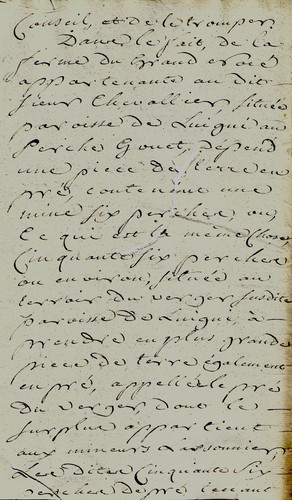 Conseil, et de le tromper
Dans le fait, de la
ferme du Grand
appartenante au dit
Sieur Chevallier, située
paroisse de Luigni au
Perche Gouet, depend
une piece de terre en
pré, contenant une
mine six perches, ou
ce qui est la même chose,
Cinquante six perches
ou environ, située au
terroir du verger susdite
paroisse de Luigni, à
prendre en plus grande
piece de terre également
en pré, appellée le pré
du verger dont le
surplus appartient
aux mineurs
Les dites Cinquante Six
perches de pré tenant